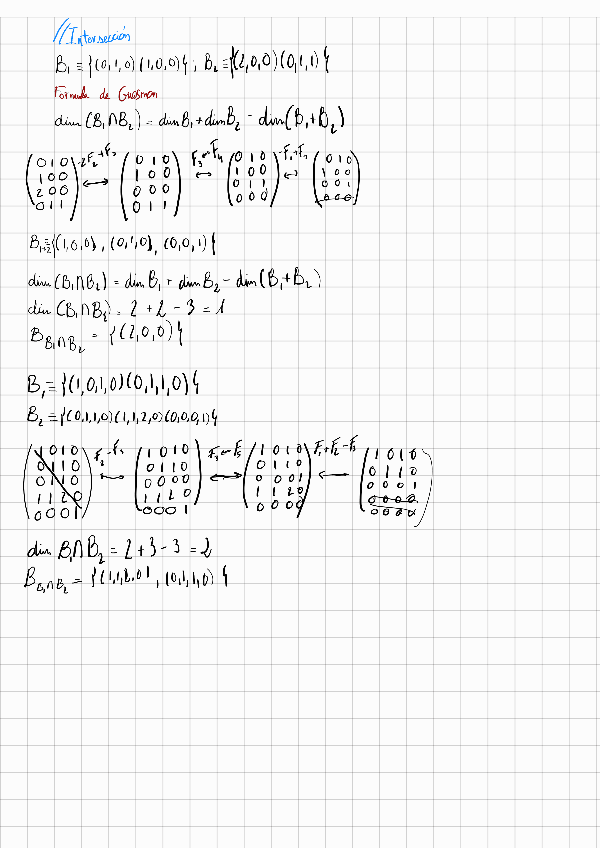 //Intersección
B₁ = {(0,1,0)(1,0,0)}; B₂ = {(2,0,0)(0,1,1)}
Formula de Grassman
dim (B₁∩B₂) = dim B₁ + dim B₂ - dim(B₁+B₂)
(0 1 0 / 1 0 0 / 2 0 0 / 0 1 1) -2F₂+F₃ ↔ (0 1 0 / 1 0 0 / 0 0 0 / 0 1 1) F₃↔F₄ ↔ (0 1 0 / 1 0 0 / 0 1 1 / 0 0 0) -F₁+F₃ ↔ (0 1 0 / 1 0 0 / 0 0 1 / 0 0 0)
B₁₊₂ = {(1,0,0), (0,1,0), (0,0,1)}
dim (B₁∩B₂) = dim B₁ + dim B₂ - dim(B₁+B₂)
dim (B₁∩B₂) = 2 + 2 - 3 = 1
B_B₁∩B₂ = {(2,0,0)}
B₁ = {(1,0,1,0)(0,1,1,0)}
B₂ = {(0,1,1,0)(1,1,2,0)(0,0,0,1)}
(1 0 1 0 / 0 1 1 0 / 0 1 1 0 / 1 1 2 0 / 0 0 0 1) ↔ (1 0 1 0 / 0 1 1 0 / 0 0 0 0 / 1 1 2 0 / 0 0 0 1) ↔ (1 0 1 0 / 0 1 1 0 / 0 0 0 1 / 1 1 2 0 / 0 0 0 0) ↔ (1 0 1 0 / 0 1 1 0 / 0 0 0 1 / 0 0 0 0 / 0 0 0 0)
dim B₁∩B₂ = 2 + 3 - 3 = 2
B_B₁∩B₂ = {(1,1,2,0), (0,1,1,0)}